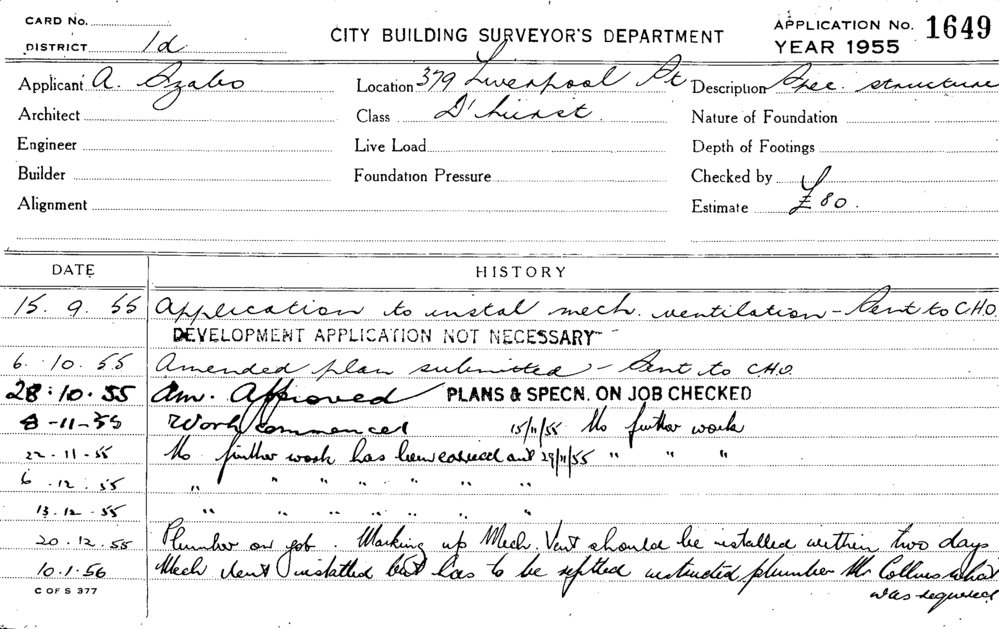 CARD No.
DISTRICT 1d
CITY BUILDING SURVEYOR'S DEPARTMENT
APPLICATION No. 1649
YEAR 1955
Applicant A. Szabo
Location 379 Liverpool St
Description Spec. structure
Architect
Class D'hurst.
Nature of Foundation
Engineer
Live Load
Depth of Footings
Builder
Foundation Pressure
Checked by
Alignment
Estimate £80.
DATE
HISTORY
15.9.55 Application to instal mech. ventilation - Sent to C.H.O.
DEVELOPMENT APPLICATION NOT NECESSARY
6.10.55 Amended plan submitted - Sent to C.H.O.
28.10.55 Am. Approved PLANS & SPECN. ON JOB CHECKED
8-11-55 Work commenced 15/11/55 No further work
22-11-55 No further work has been carried out 29/11/55 " " "
6.12.55 " " " " " " "
13.12.55 " " " " " "
20.12.55 Plumber on job. Marking up Mech. Vent should be installed within two days
10.1.56 Mech Vent installed but has to be instructed plumber Mr Collins what
was required
C OF S 377